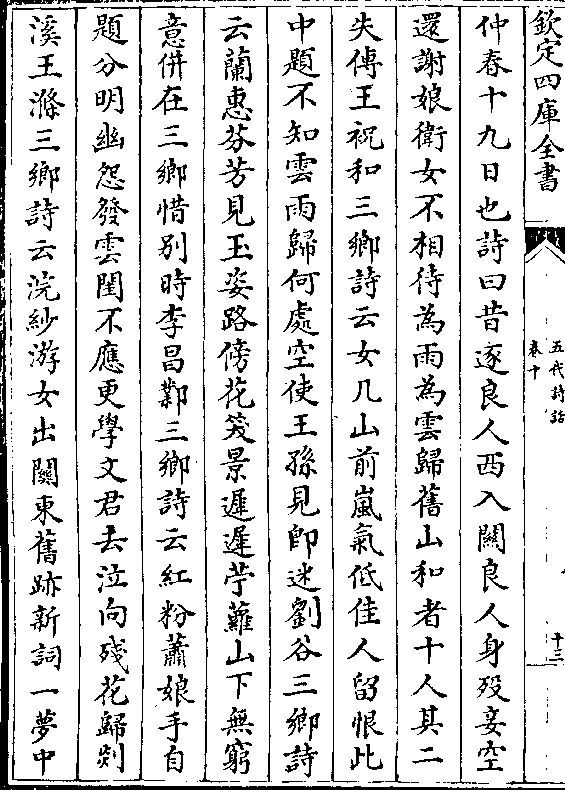 欽定四庫全書
五代詩話
卷十
十三
仲春十九日也詩曰昔逐良人西入關良人身殁妾空
還謝娘衛女不相待為雨為雲歸舊山和者十人其二
失傳王祝和三鄉詩云女几山前嵐氣低佳人留恨此
中題不知雲雨歸何處空使王孫見即迷劉谷三鄉詩
云蘭惠芬芳見玉姿路傍花笑景遲遲苧蘿山下無窮
意併在三鄉惜别時李昌鄴三鄉詩云紅粉蕭娘手自
題分明幽怨發雲閨不應更學文君去泣向殘花歸剡
溪王滌三鄉詩云浣紗游女出關東舊跡新詞一夢中